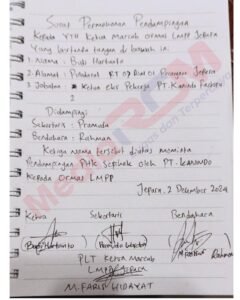 Surat Permohonan Pendampingan
Kepada YTH Ketua Marcab Ormas LMPP Jepara
Yang bertanda tangan di bawah ini:
1. Nama : Budi Hartanto
2. Alamat : RT 07 RW 01 Jepara
3. Jabatan : Ketua eks Pekerja PT. Kanindo
2
Didampingi
Sekertaris : Pramudu
Bendahara : Rahman
Ketiga nama tersebut diatas meminta
Pendampingan PHK Sepihak oleh PT. KANINDO
Kepada Ormas LMPP
Jepara, 2 Desember 2024
Ketua Sekertaris Bendahara
Budi Hartanto
PLT Ketua Marcab
LMPP Jepara
M. FARIS HIDAYAT